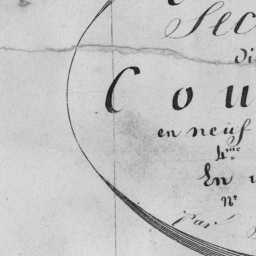 Sec
di
Cou
en neuf
4.me
En
N.
Par